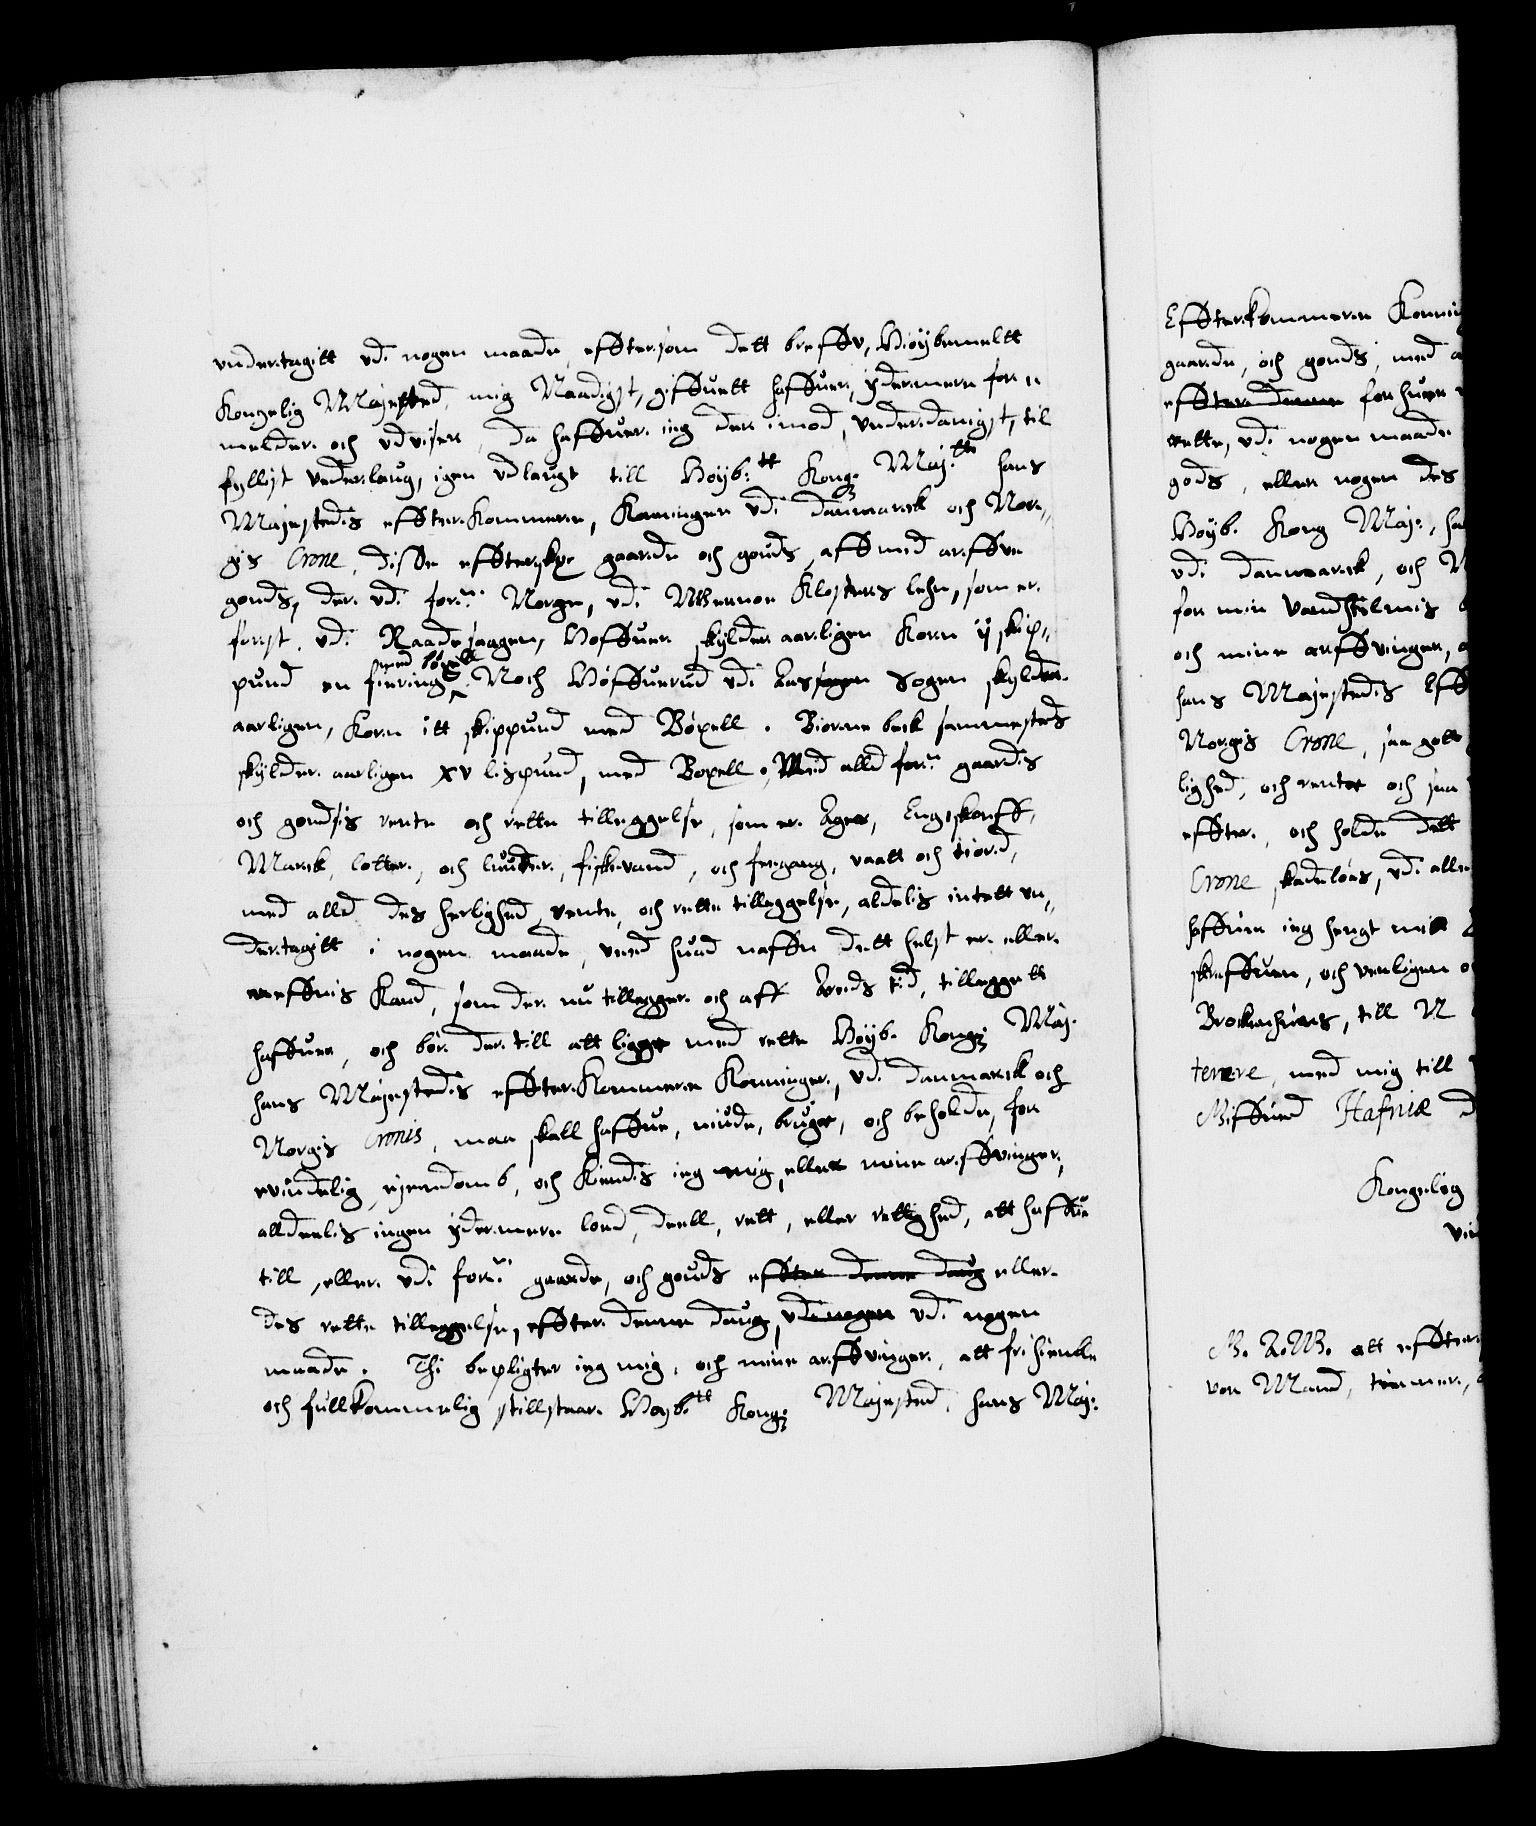 undertagitt udi nogen maade, effterſom dett breffv, Høybemeltt
Kongelig Majested, mig Naadigst, giffuett haffuer, ydermere for¬
melder och udviſer, da haffuer ieg der imod, underdanigst, til
fyllist vederlaug, igen udlaugt till Høyb:tt Kong: Maj:tts hans
Majesteds effterkommere, Kaaninger udi danmarck och Nor¬
gis Crone, diſſe effterskr: gaarde och gouds, aff med arffve
gouds, der udi for:ne Norge, udi Wernoe Klosters lehn, som er
forst, udi Raadeſaagen, Hoffuen skylder aarligen Korn ij skip¬
pund en fiering med bøxell Noch Høffuerud udi Aas sogen Sogen skylder
aarligen, Korn itt skippund med Bøxell. Biornebeck sammesteds
skylder aarligen xv lispund, med Boxell, Med alld for:ne gaardis
och goudſis rente och rette tilleggelſe, som er Ager, Engskouff,
Marck, lotter, och lunder, fiskevand, och feegang, vaatt och tiørd,
med alld des herlighed, rente, och rette tilleggelſe, aldelis intett un¬
dertagitt i nogen maade, ved huad naffn dett helst er eller
neffnis Kand, som der nu tillegger och aff Areds tid, tilleggett
haffuer, och bør der till att ligge med rette Høyb. Kong: Maj:
hans Majesteds effterkommere Konninger, udi danmarck och
Norgis Cronis, maa skall haffue, niude, bruge, och beholde, for
evindelig ejendomb, och Kiendis ieg mig, eller mine arffvinger,
alldeelis ingen ydermere loed, deell, rett, eller rettighed, att haffue
till, eller udi for:ne gaarde, och gouds effter denne daug eller
des rette tilleggelſe, effter denne daug, udi nogen udi nogen
maade. Thi bepligter ieg mig, och mine arffvinger, att fri hiemble
och fullkommelig tillstaar Høyb:tt Kong: Majested, hans Maj:
Effterkommere Konni
gaarde, och gouds, med a
effter denne for huer
rette, udi nogen maade
gods, eller nogen des
Høyb. Kong Maj:, ha
udi danmarck, och N
for min Vandhielmis
och mine arffvinger,
hans Majesteds Eff
Norgis Crone, saa gott
lighed, och rente och saa
effter, och holde dett
Crone skadeløes, udi alle
haffuer ieg hengt mit
skreffuen, och venligen
Brockenhuus, till N
terne, med mig till
Giffued Hafniæ D
Kongelig
B. A. W. att effter
von Mand, tømmer,